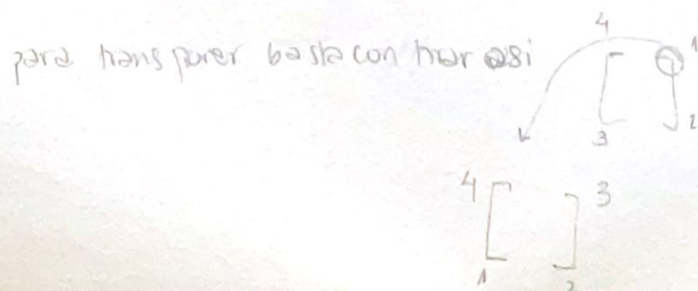 para transponer basta con tirar así
4
1
3
2
4
3
1
2